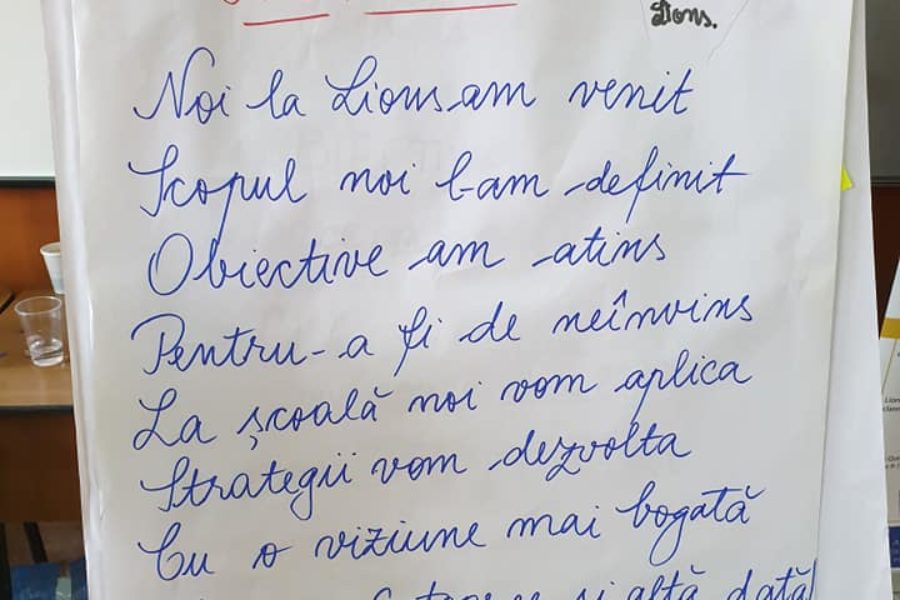 Lions.
Noi la Lions am venit
Scopul noi l-am definit
Obiective am atins
Pentru-a fi de neînvins
La școală noi vom aplica
Strategii vom dezvolta
Cu o viziune mai bogată
și altă dată!